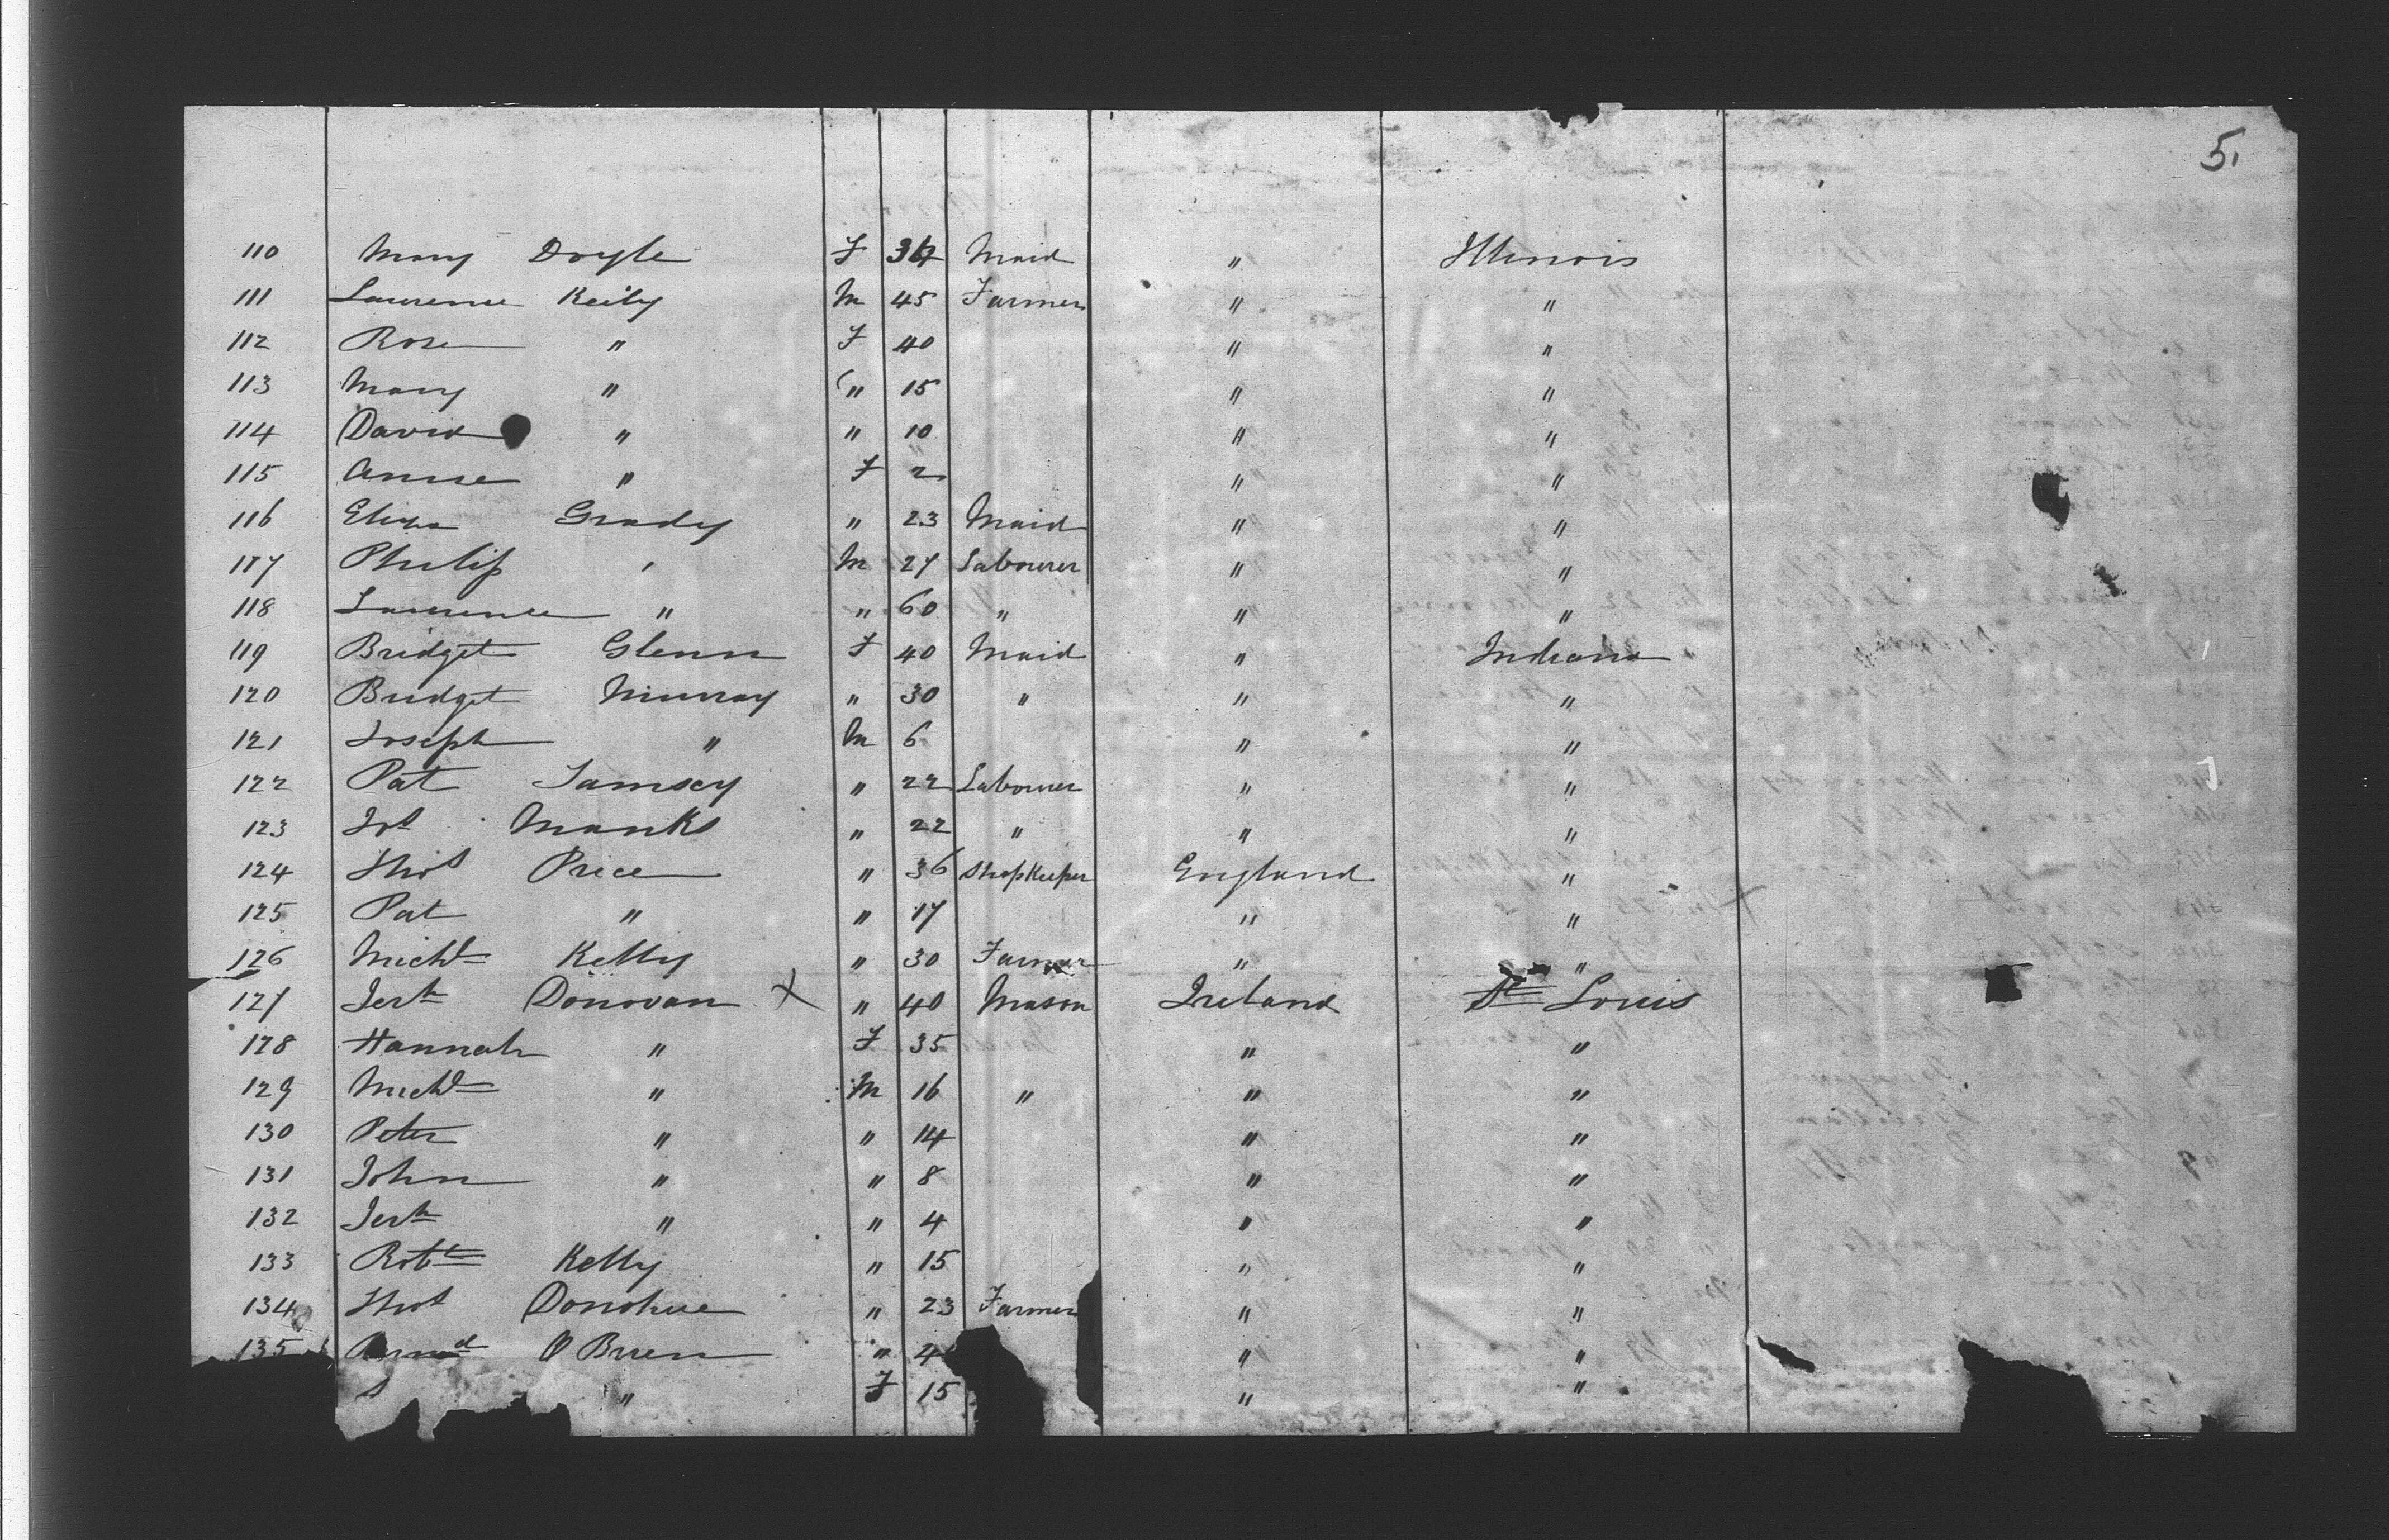 5,
110 Mary Doyle F 34 Maid " Illinois
111 Laurence Keily M 45 Farmer " "
112 Rose " F 40 " "
113 Mary " " 15 " "
114 David " " 10 " "
115 Anne " F 2 " "
116 Eliza Grady " 23 Maid " "
117 Philip " M 27 Labourer " "
118 Laurence " " 60 " " "
119 Bridget Glenn F 40 Maid " Indiana
120 Bridget Murray " 30 " " "
121 Joseph " M 6 " "
122 Pat " 22 Labourer " "
123 Manks " 22 " " "
124 Thos Price " 36 Shopkeeper England "
125 Pat " " 17 " "
126 Michl Kelly " 30 Farmer " "
127 Jerh Donovan X " 40 Mason Ireland St Louis
128 Hannah " F 35 " "
129 Michl " M 16 " " "
130 Peter " " 14 " "
131 John " " 8 " "
132 Jerh " " 4 " "
133 Robt Kelly " 15 " "
134 Thos Donohue " 23 Farmer " "
135 O'Brien " " "
" F 15 " "